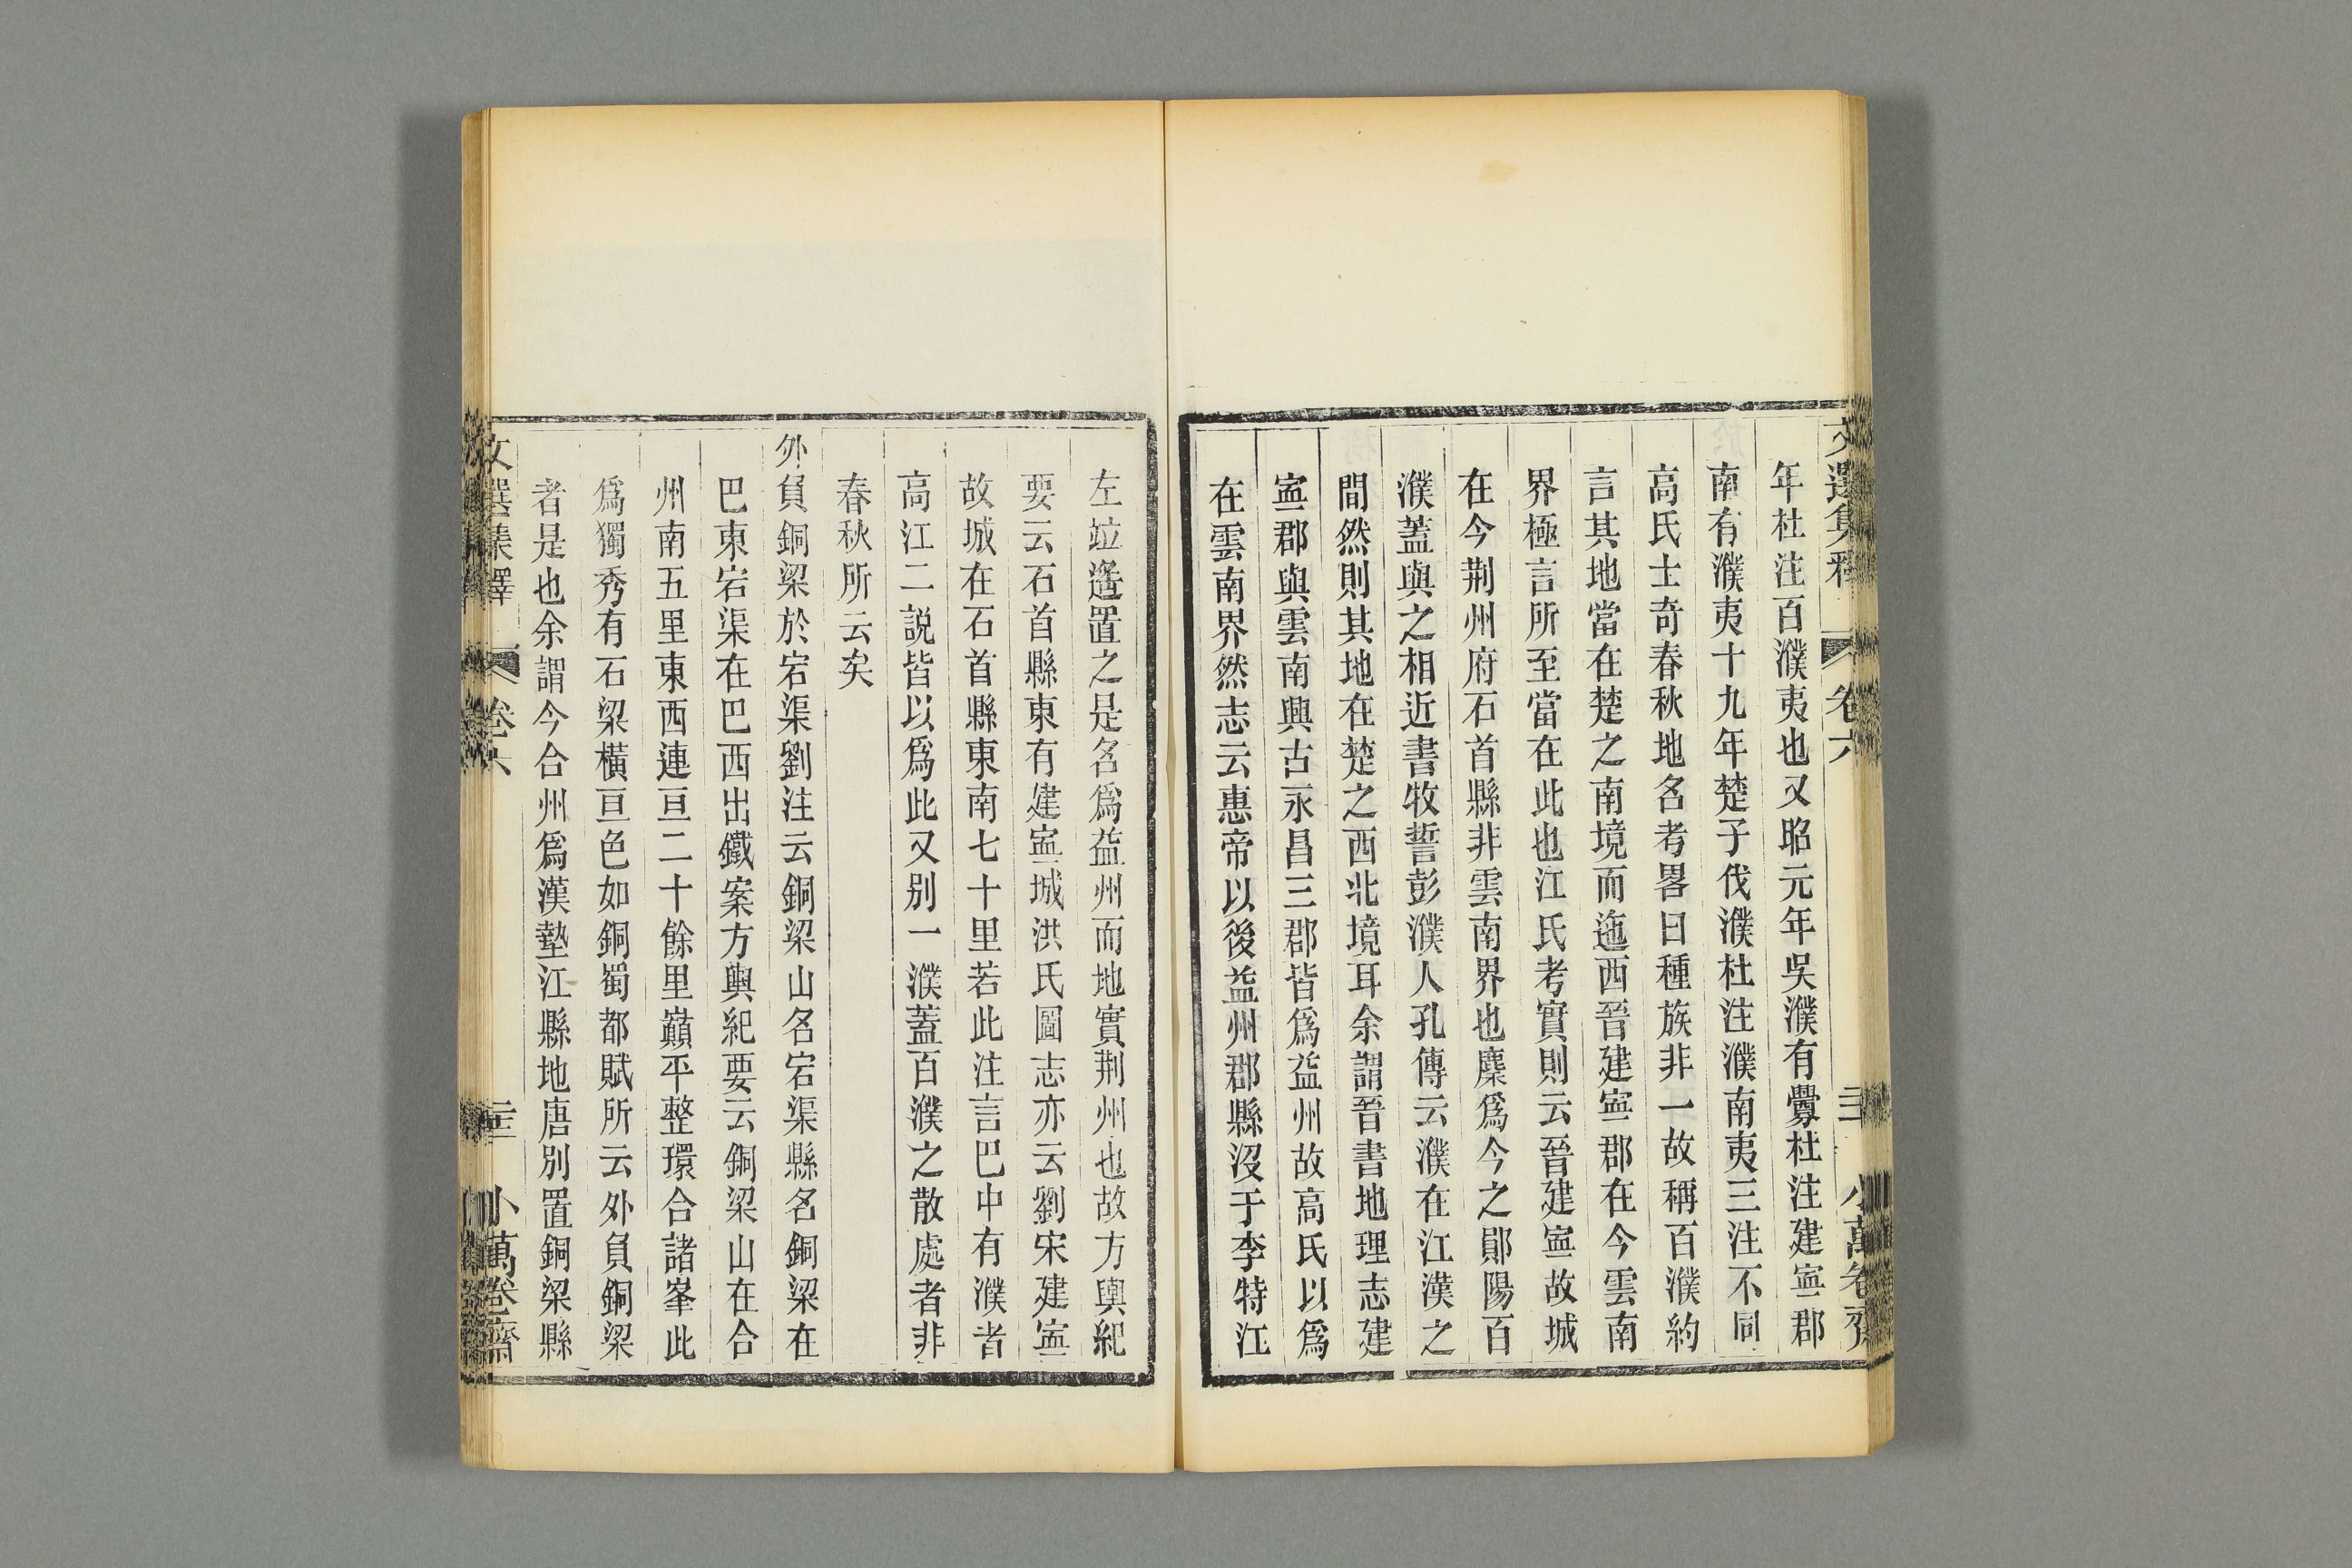 文選集釋 卷六 三十 小萬卷齋
年杜注百濮夷也又昭元年吳濮有釁杜注建寍郡
南有濮夷十九年楚子伐濮杜注濮南夷三注不同
高氏士奇春秋地名考畧曰種族非一故稱百濮約
言其地當在楚之南境而迤西晉建寍郡在今雲南
界極言所至當在此也江氏考實則云晉建寍故城
在今荆州府石首縣非雲南界也麇爲今之鄖陽百
濮蓋與之相近書牧誓彭濮人孔傳云濮在江漢之
間然則其地在楚之西北境耳余謂晉書地理志建
寍郡與雲南興古永昌三郡皆爲益州故高氏以爲
在雲南界然志云惠帝以後益州郡縣沒于李特江
左竝遙置之是名爲益州而地實荆州也故方輿紀
要云石首縣東有建寍城洪氏圖志亦云劉宋建寍
故城在石首縣東南七十里若此注言巴中有濮者
高江二說皆以爲此又别一濮蓋百濮之散處者非
春秋所云矣
外負銅梁於宕渠劉注云銅梁山名宕渠縣名銅梁在
巴東宕渠在巴西出鐵案方輿紀要云銅梁山在合
州南五里東西連亘二十餘里巔平整環合諸峯此
爲獨秀有石梁橫亘色如銅蜀都賦所云外負銅梁
者是也余謂今合州爲漢墊江縣地唐別置銅梁縣
文選集釋 卷六 小萬卷齋